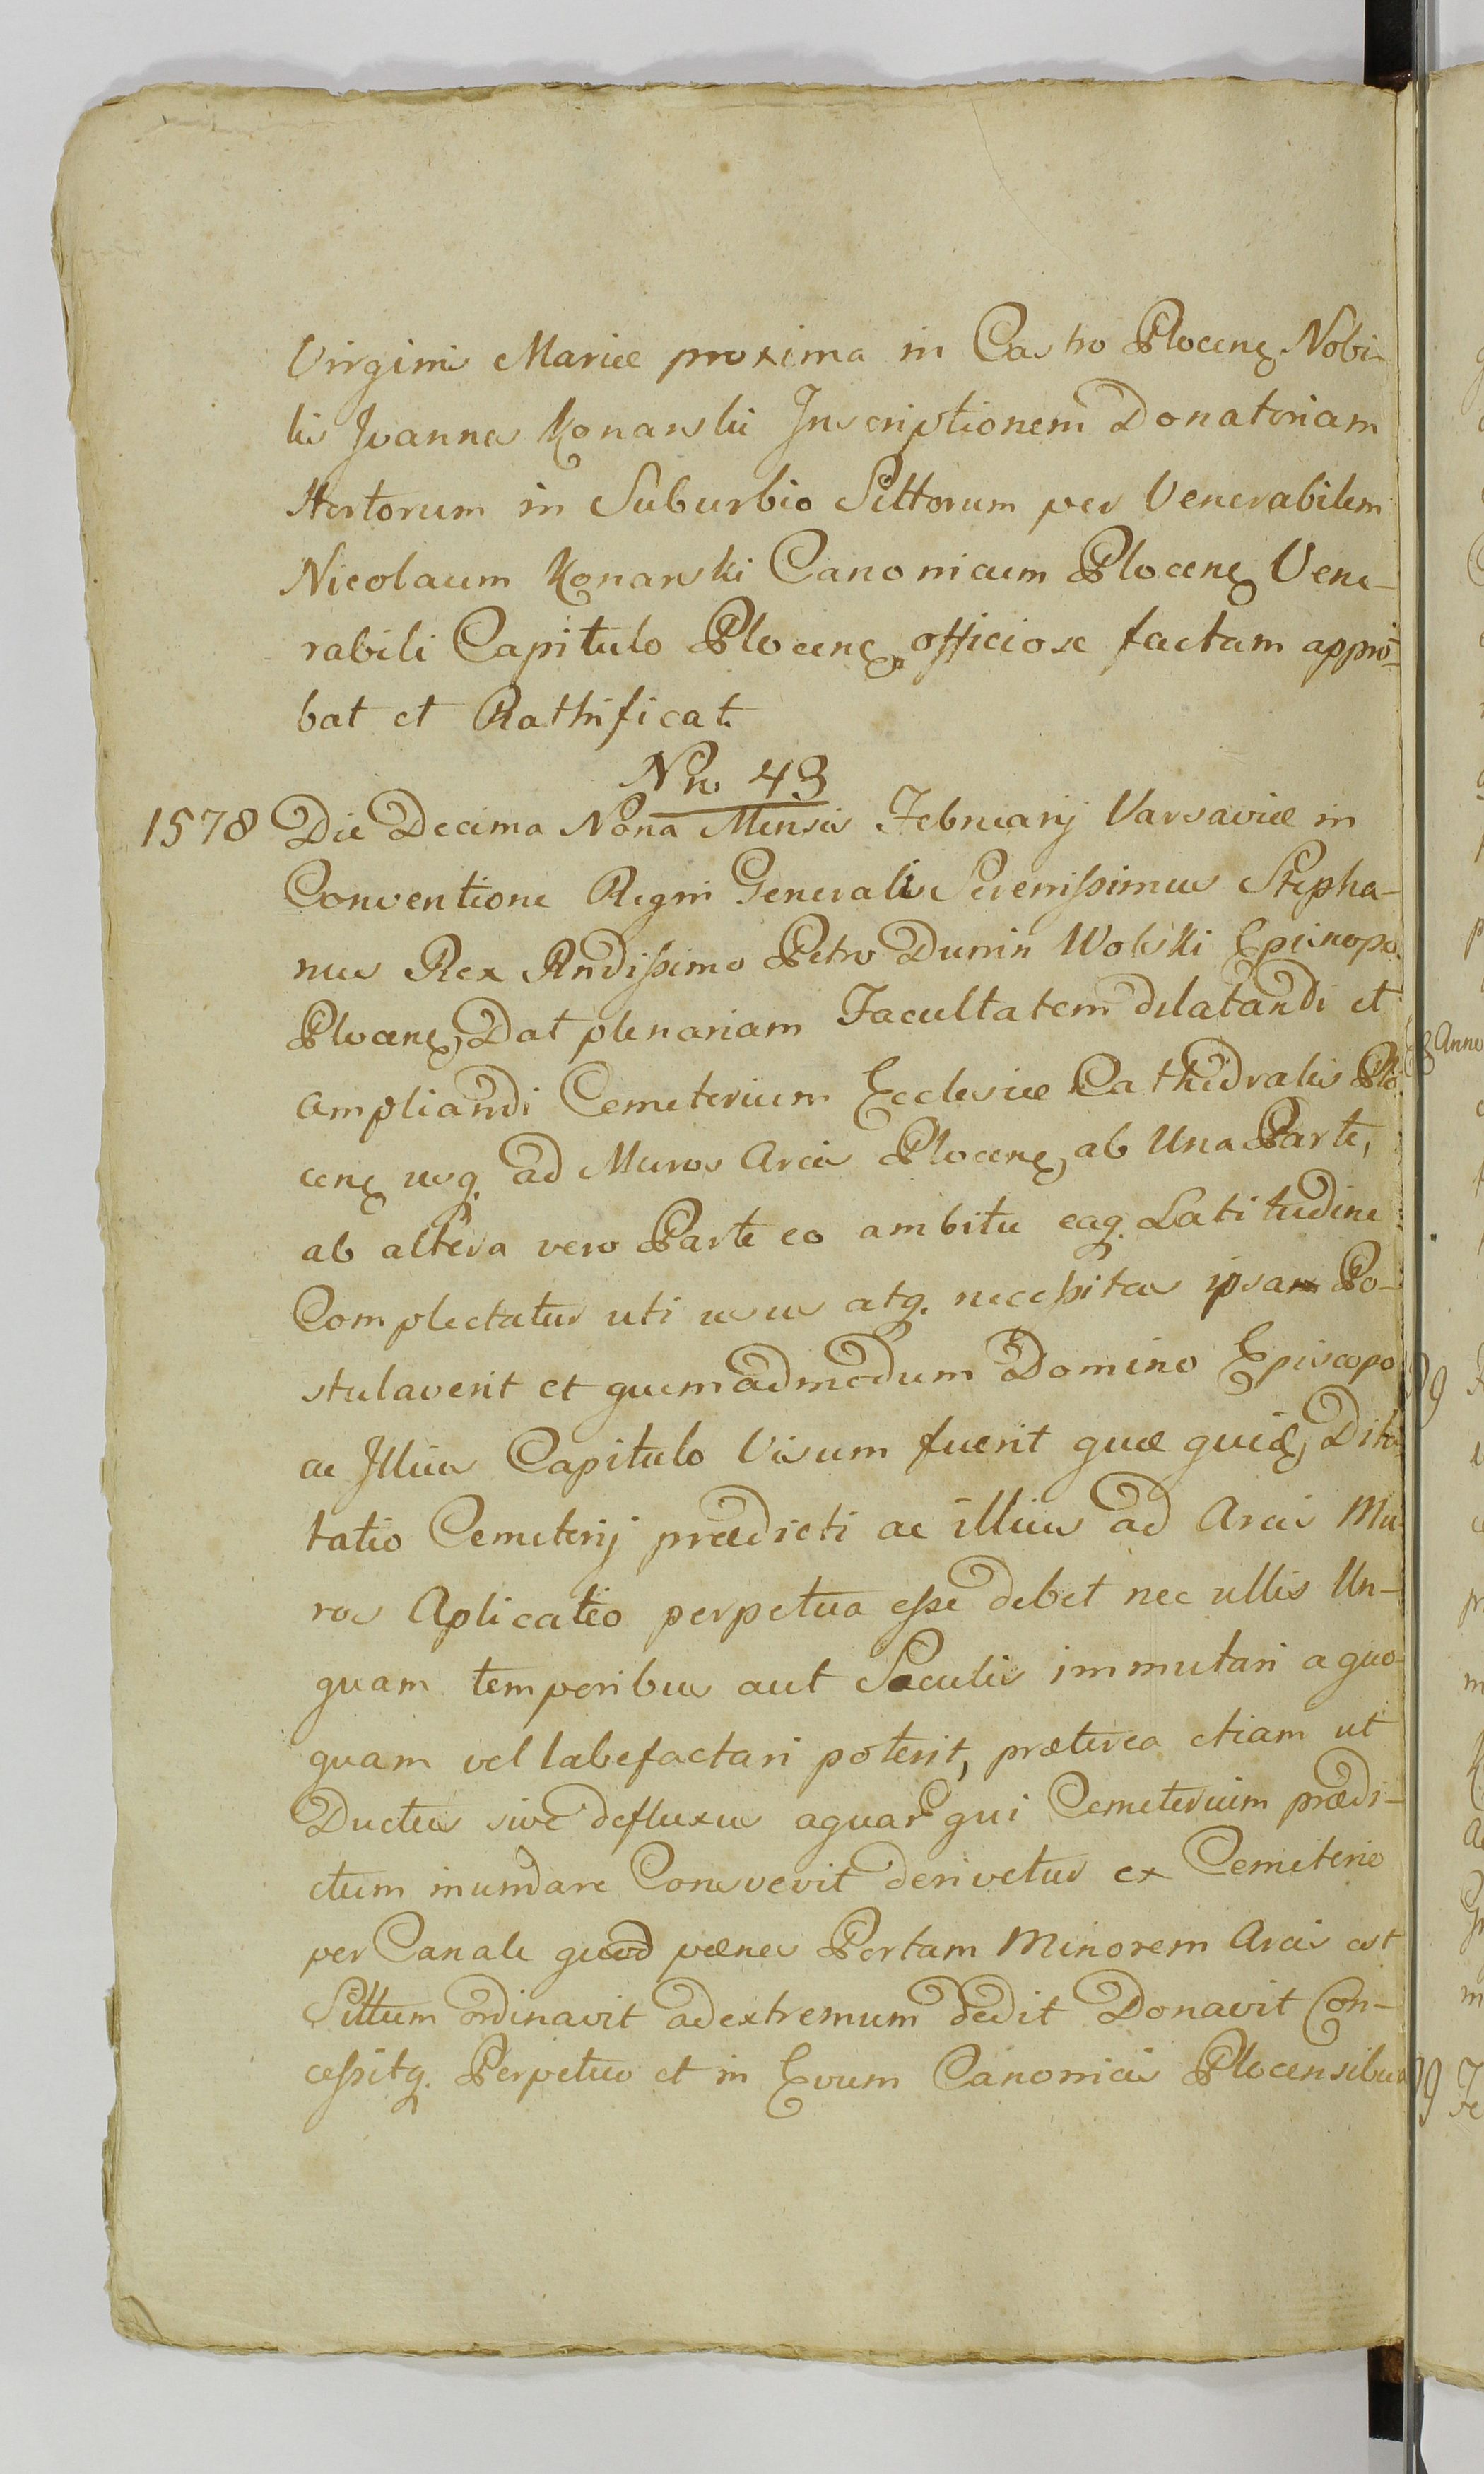 Virginis Mariæ proxima in Castro Plocens. Nobi-
lis Joannes Konarski Inscriptionem Donatoriam
Hortorum in Suburbio Sittorum per Venerabilem
Nicolaum Konarski Canonicum Plocens. Vene-
rabili Capitulo Plocens. officiose factam appro-
bat et Rathificat.
Nro. 43
1578 Die Decima Nona Mensis Februarij Varsaviæ in
Conventione Regni Generali Serenissimus Stepha-
nus Rex Rndissimo Petro Dunin Wolski Episcopo
Plocens, Dat plenariam Facultatem dilatandi et
ampliandi Cemeterium Ecclesiæ Cathedralis Plo-
cens usq. ad Muros Arcis Plocens, ab Una Parte,
ab altera vero Parte eo ambitu eaq. Latitudine
Complectatur uti usus atq. necessitas ipsa Po-
stulaverit et quemadmodum Domino Episcopo
ac Illius Capitulo Visum fuerit quæ quid,
tatio Cemeterij prædicti ac illius ad Arcis Mu-
ros Aplicatio perpetua esse debet nec ullis Un-
quam temporibus aut Sæculis immutari a quo-
quam vel labefactari poterit, præterea etiam ut
Ductus sive defluxus aquar qui Cemeterium prædi-
ctum inundare Consvevit derivetur ex Cemeterio
per Canale quod pænes Portam Minorem Arcis est
Sittum ordinavit ad extremum dedit Donavit Con-
cessitq. Perpetuo et in Evum Canonicis Plocensibus